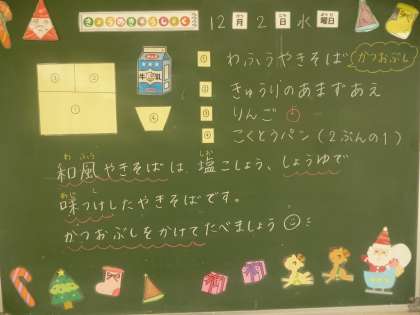 きょうのきゅうしょく
12月2日水曜日
① わふうやきそば かつおぶし
② きゅうりのあまずあえ
③ りんご
④ こくとうパン(2ぶんの1)
③ ②
①
④
牛乳
わ ふう しお
和風やきそばは、塩こしょう、しょうゆで
あじ
味つけしたやきそばです。
かつおぶしをかけてたべましょう